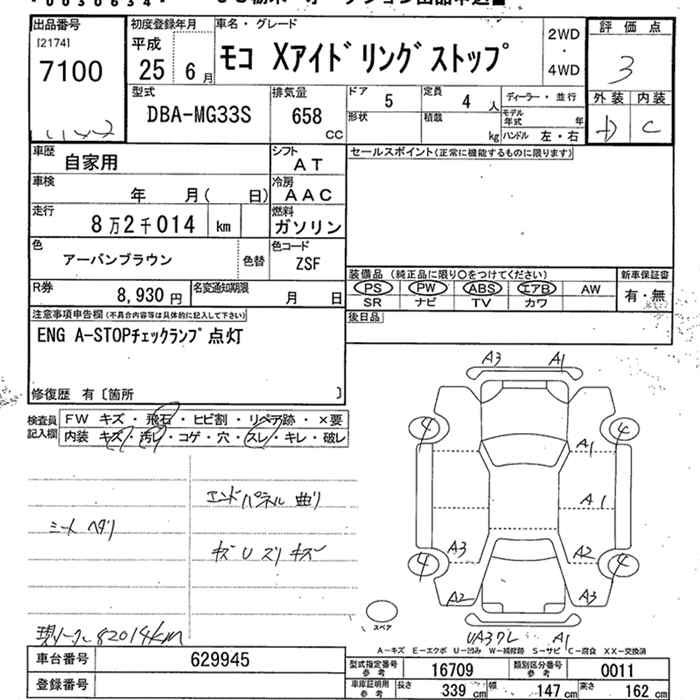 出品番号
[2174]
7100
初度登録年月
平成
25 6月
車名・グレード
モコ Xアイドリングストップ
2WD
・
4WD
評価点
3
外装 内装
D C
型式
DBA-MG33S
排気量
658
CC
ドア
5
定員
4人
形状
積載
kg
ディーラー・並行
モデル年式 年
ハンドル 左・右
車歴
自家用
シフト
AT
車検
年 月( 日)
冷房
AAC
走行
8万2千014 km
燃料
ガソリン
色
アーバンブラウン
色替
色コード
ZSF
R券
8,930円
名変通知期限
月 日
セールスポイント(正常に機能するものに限ります)
装備品 (純正品に限り○をつけてください)
PS PW ABS エアB AW
SR ナビ TV カワ
新車保証書
有・無
後日品
注意事項申告欄(不具合内容等は具体的に記入して下さい)
ENG A-STOPチェックランプ点灯
修復歴 有〔箇所 〕
検査員記入欄
FW キズ・飛石・ヒビ割・リペア跡・×要
内装 キズ・汚レ・コゲ・穴・スレ・キレ・破レ
エンドパネル曲り
シートヘタリ
キズUスリキズ
現メーター82014km
A3 A1
4 4
A1
A1
A3 A2
4 4
A2 A3
UA3ワレ A1
スペア
A-キズ E-エクボ U-凹み W-補修跡 S-サビ C-腐食 XX-交換済
車台番号
629945
登録番号
型式指定番号
参考
16709
類別区分番号
参考
0011
車庫証明用
参考
長さ 339 cm
幅 147 cm
高さ 162 cm